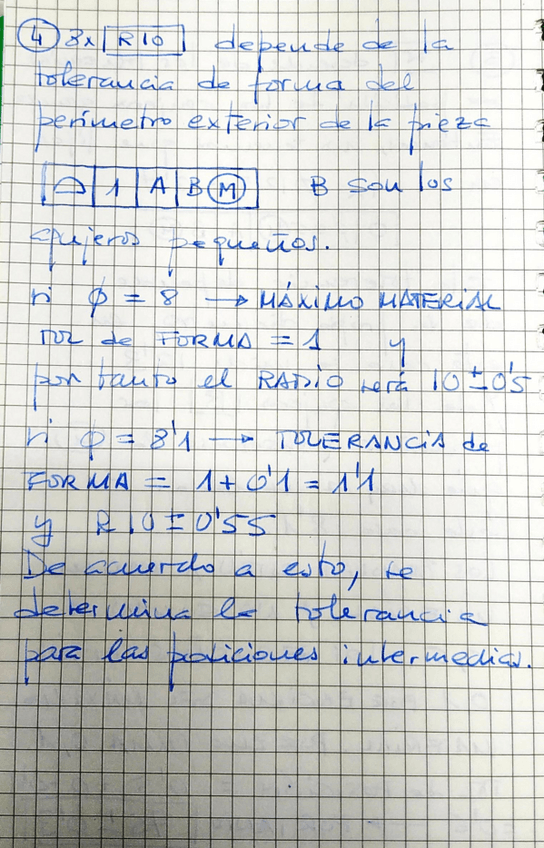 ④ 3x R10 depende de la
tolerancia de forma del
perímetro exterior de la pieza
⌓ 1 A B Ⓜ B son los
agujeros pequeños.
si φ = 8 → MÁXIMO MATERIAL
TOL de FORMA = 1 y
por tanto el RADIO será 10 ± 0'5
si φ = 8'1 → TOLERANCIA de
FORMA = 1 + 0'1 = 1'1
y R 10 ± 0'55
De acuerdo a esto, se
determina la tolerancia
para las posiciones intermedias.